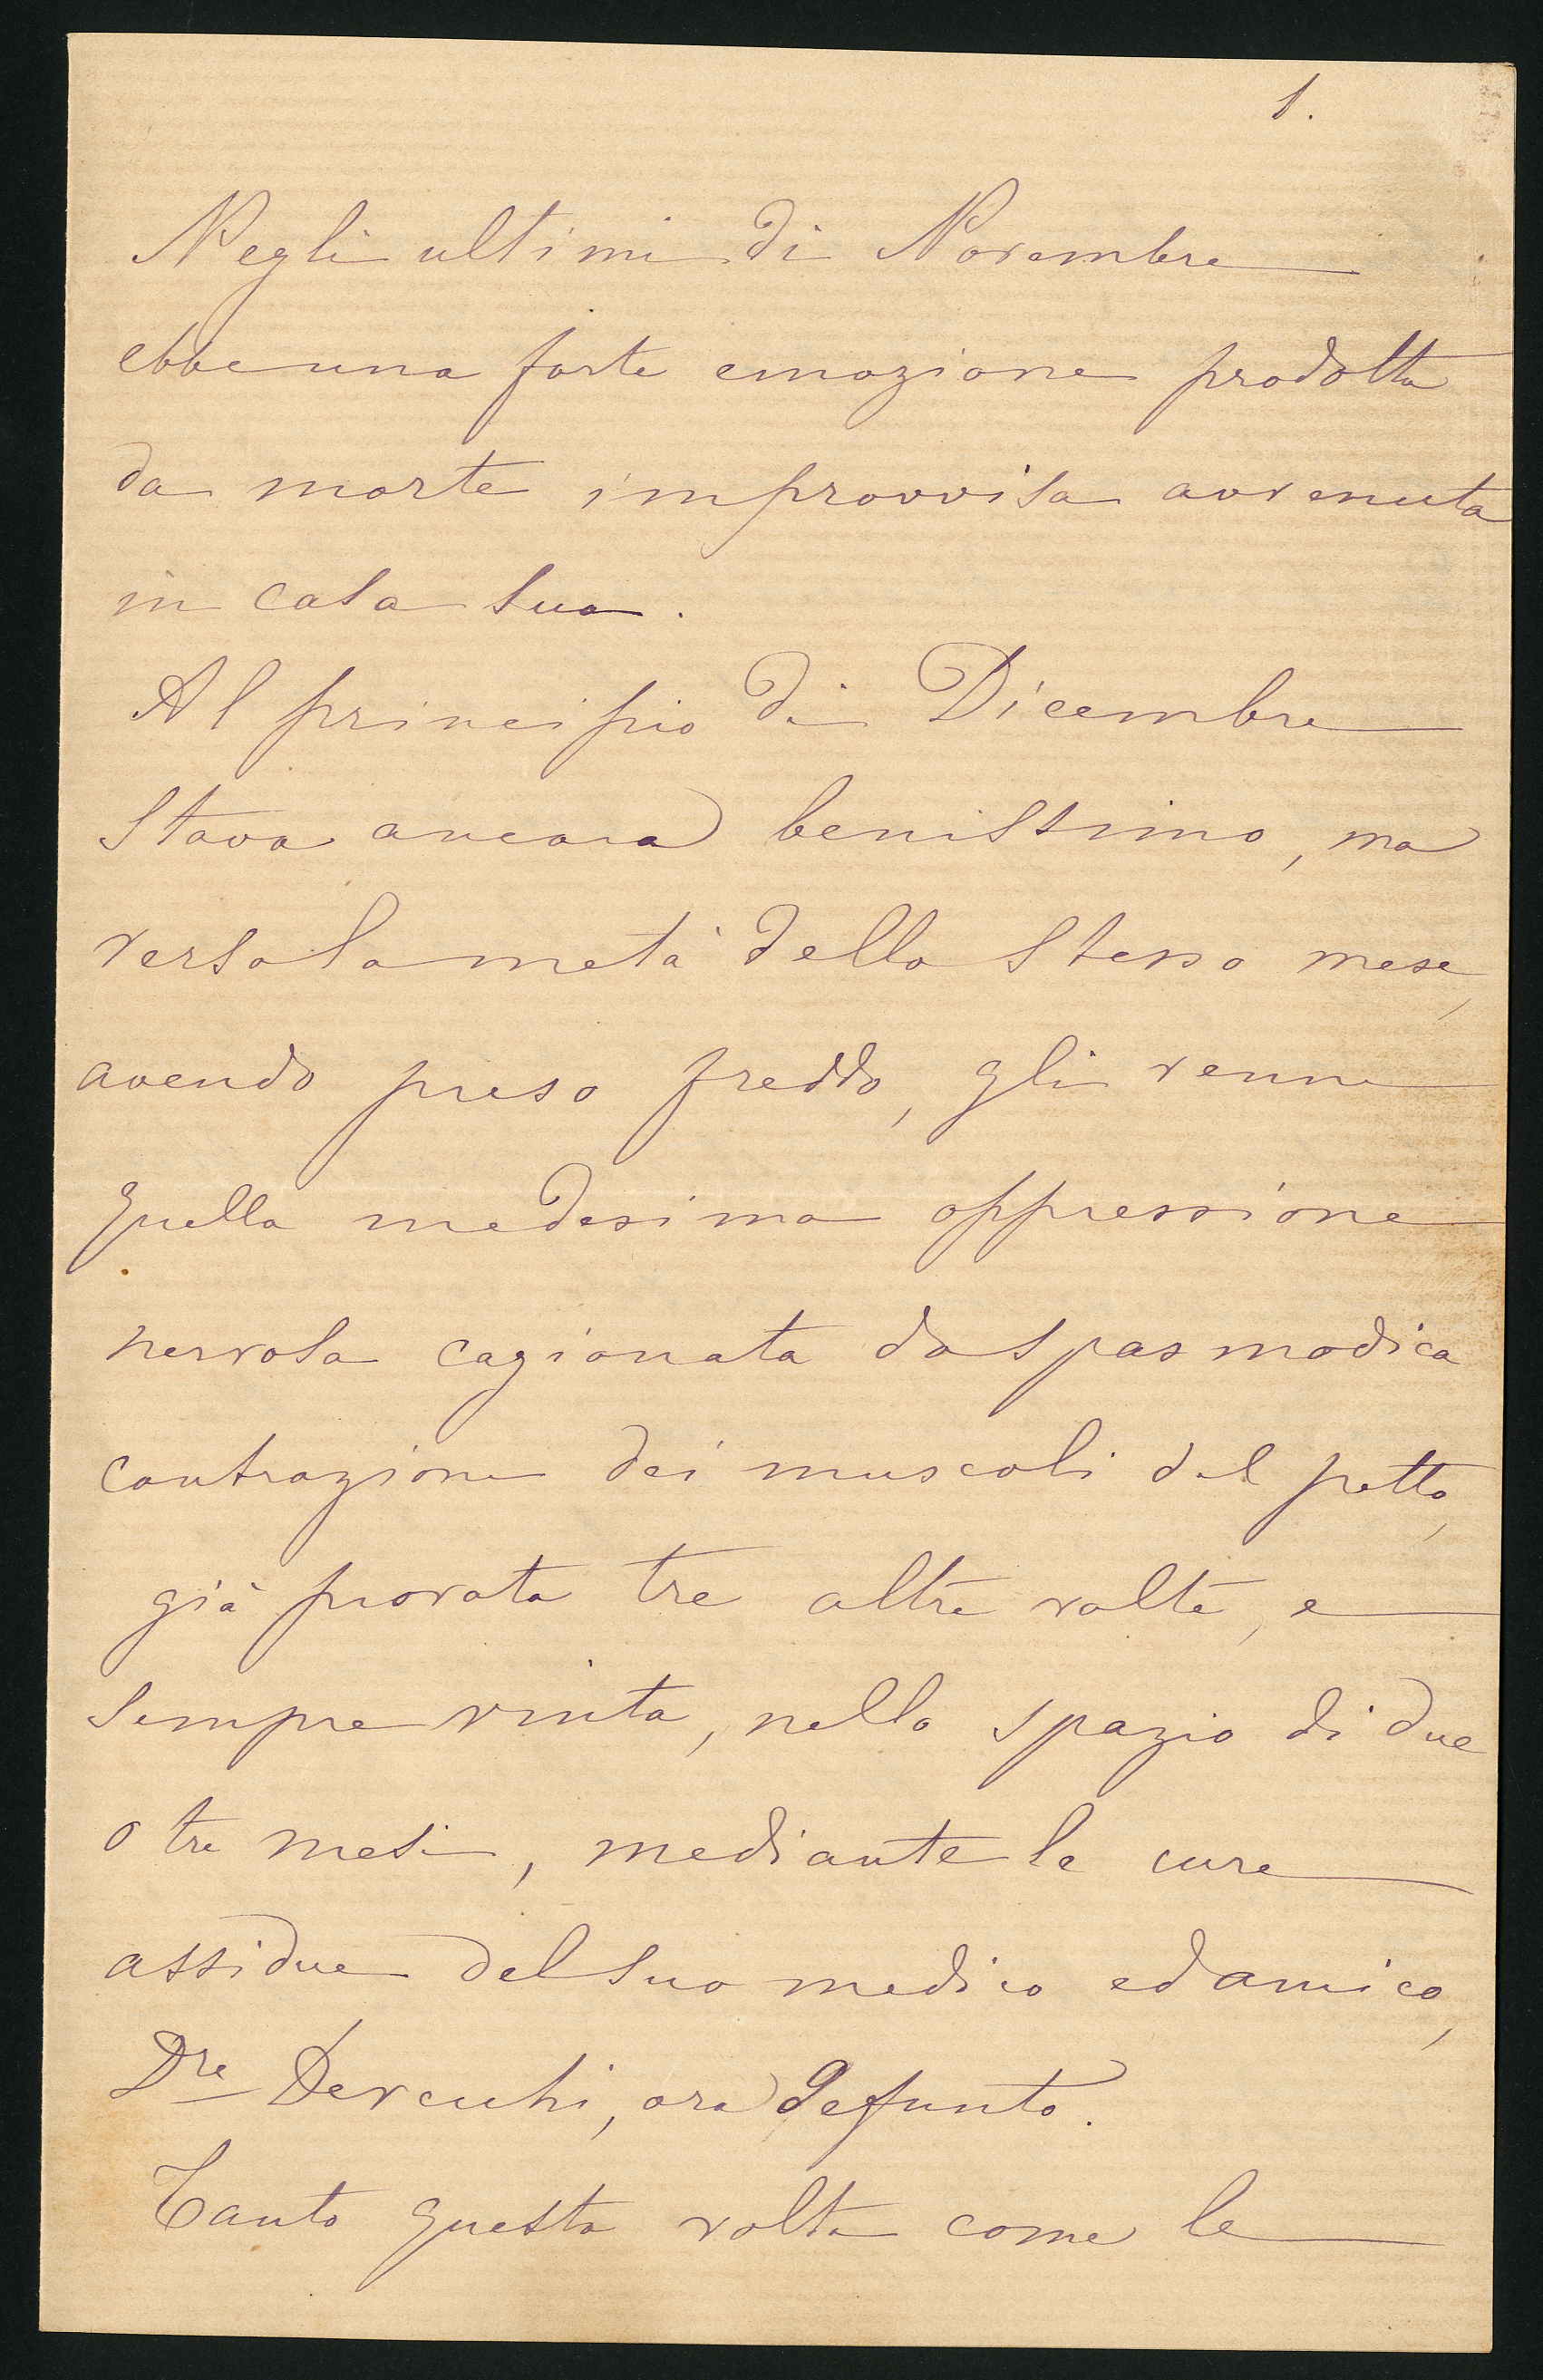 1.
Negli ultimi di Novembre
ebbe una forte emozione prodotta
da morte improvvisa avvenuta
in casa sua.
Al principio di Dicembre
stava ancora benissimo, ma
verso la metà dello stesso mese,
avendo preso freddo, gli venne
quella medesima oppressione
nervosa cagionata da spasmodica
contrazione dei muscoli del petto,
già provata tre altre volte, e
sempre vinta, nello spazio di due
o tre mesi, mediante le cure
assidue del suo medico ed amico,
Dre Devecchi, ora defunto.
Tanto questa volta come le